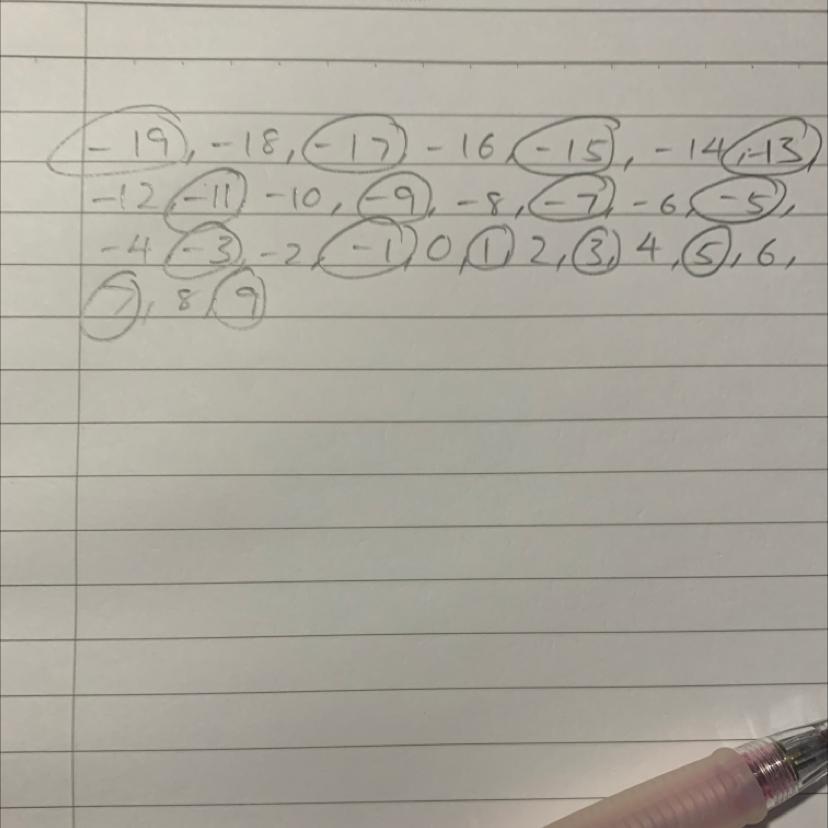 -19, -18, -17, -16, -15, -14, -13,
-12, -11, -10, -9, -8, -7, -6, -5,
-4, -3, -2, -1, 0, 1, 2, 3, 4, 5, 6,
7, 8, 9